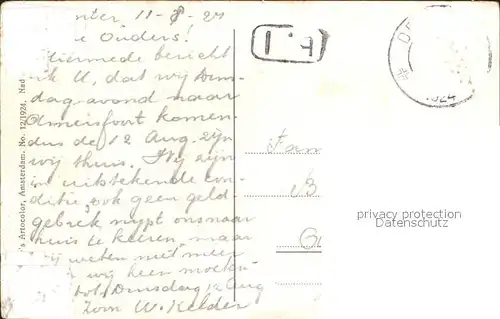 11-8-24
Ouders!
Hiermede bericht
ik U, dat wij Dins-
dag avond naar
Amersfoort komen
dus de 12 Aug. zijn
wij thuis. Wij zijn
in uitstekende con-
ditie, ook geen geld
gebrek nypt ons naar
huis te keeren, maar
wij weten niet meer
wij heen moeten
Dinsdag 12 Aug
Zoon W. Kelder
's Artocolor, Amsterdam. No. 12/1924. Nad
F. I
DE
1924
Fam
B
privacy protection
Datenschutz